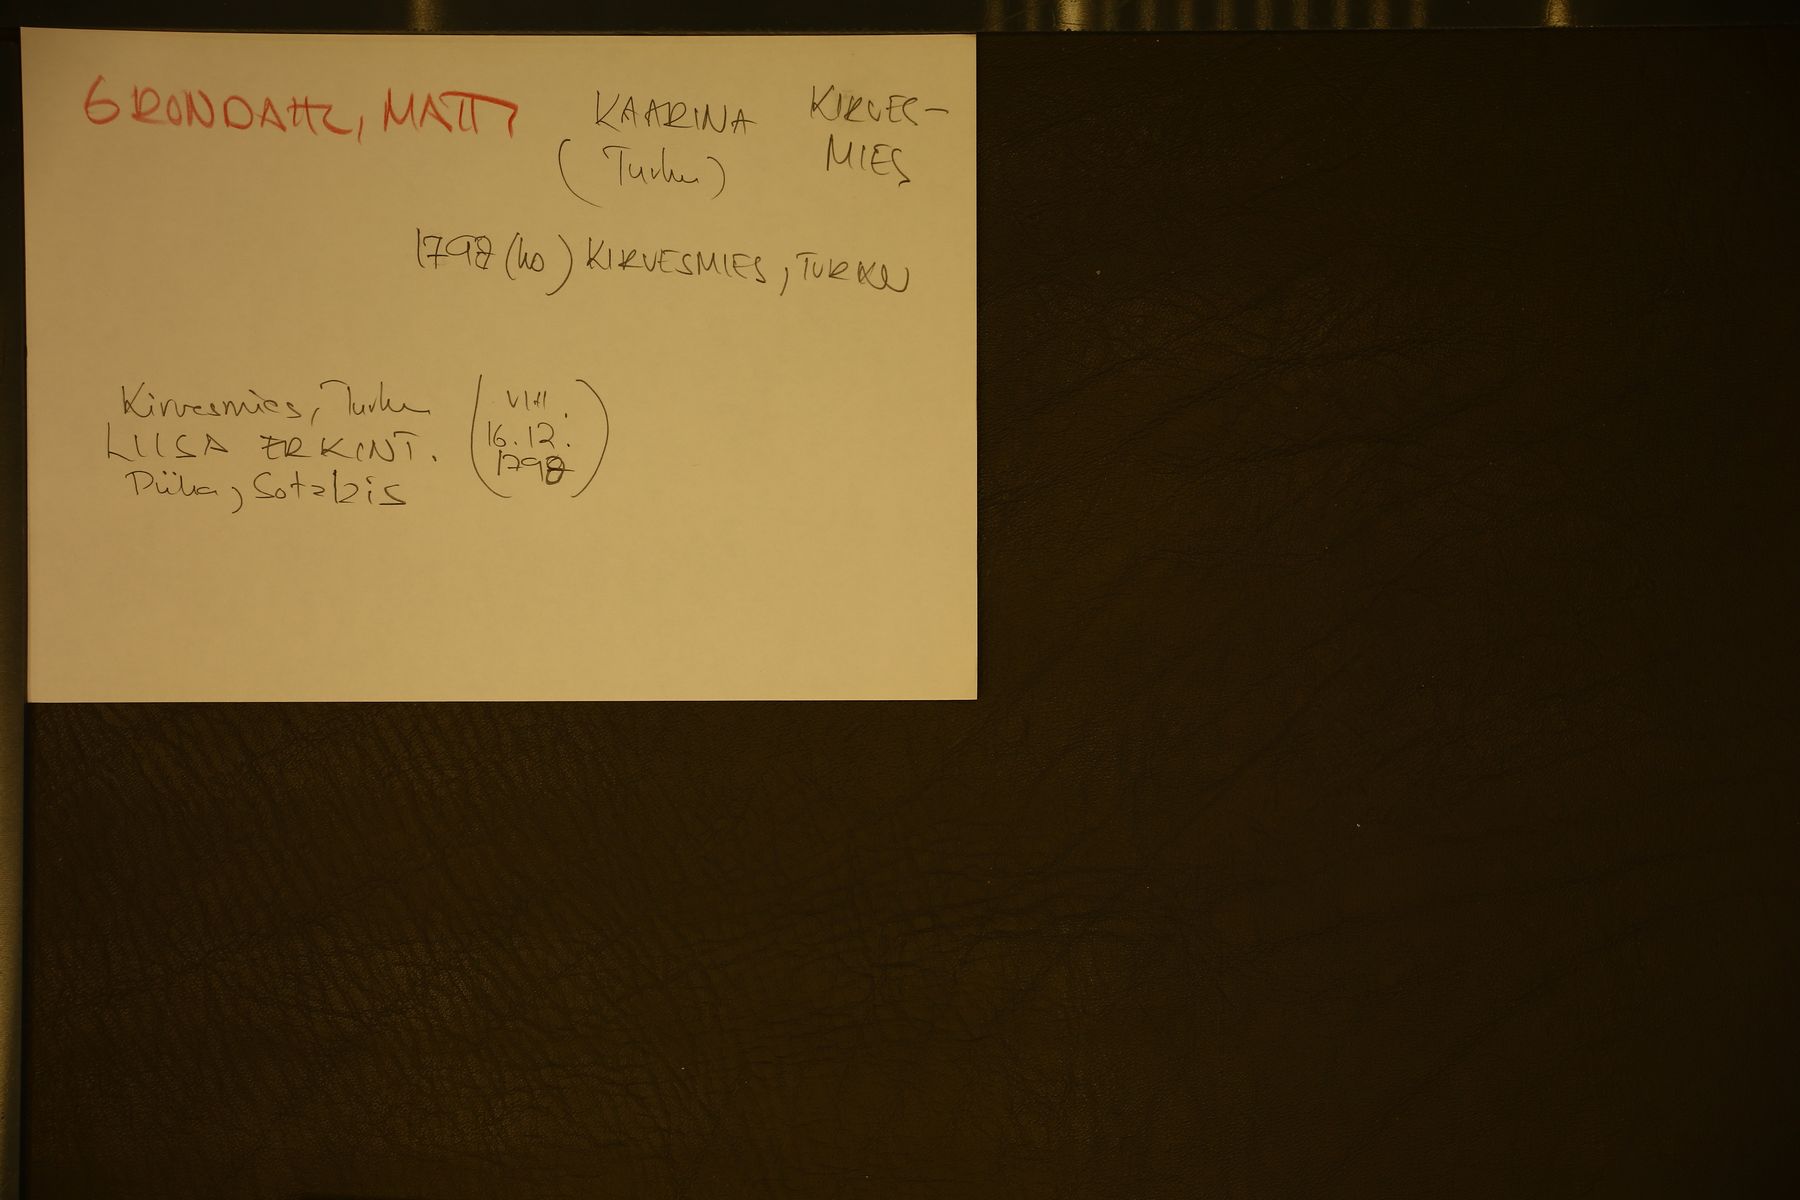 GRÖNDAHL, MATTI KAARINA KIRVES-
(Turku) MIES
1798 (ho) KIRVESMIES, TURKU
Kirvesmies, Turku
LIISA ERKINT.
Piika, Sotalais
(VIII.
16.12.
1798)